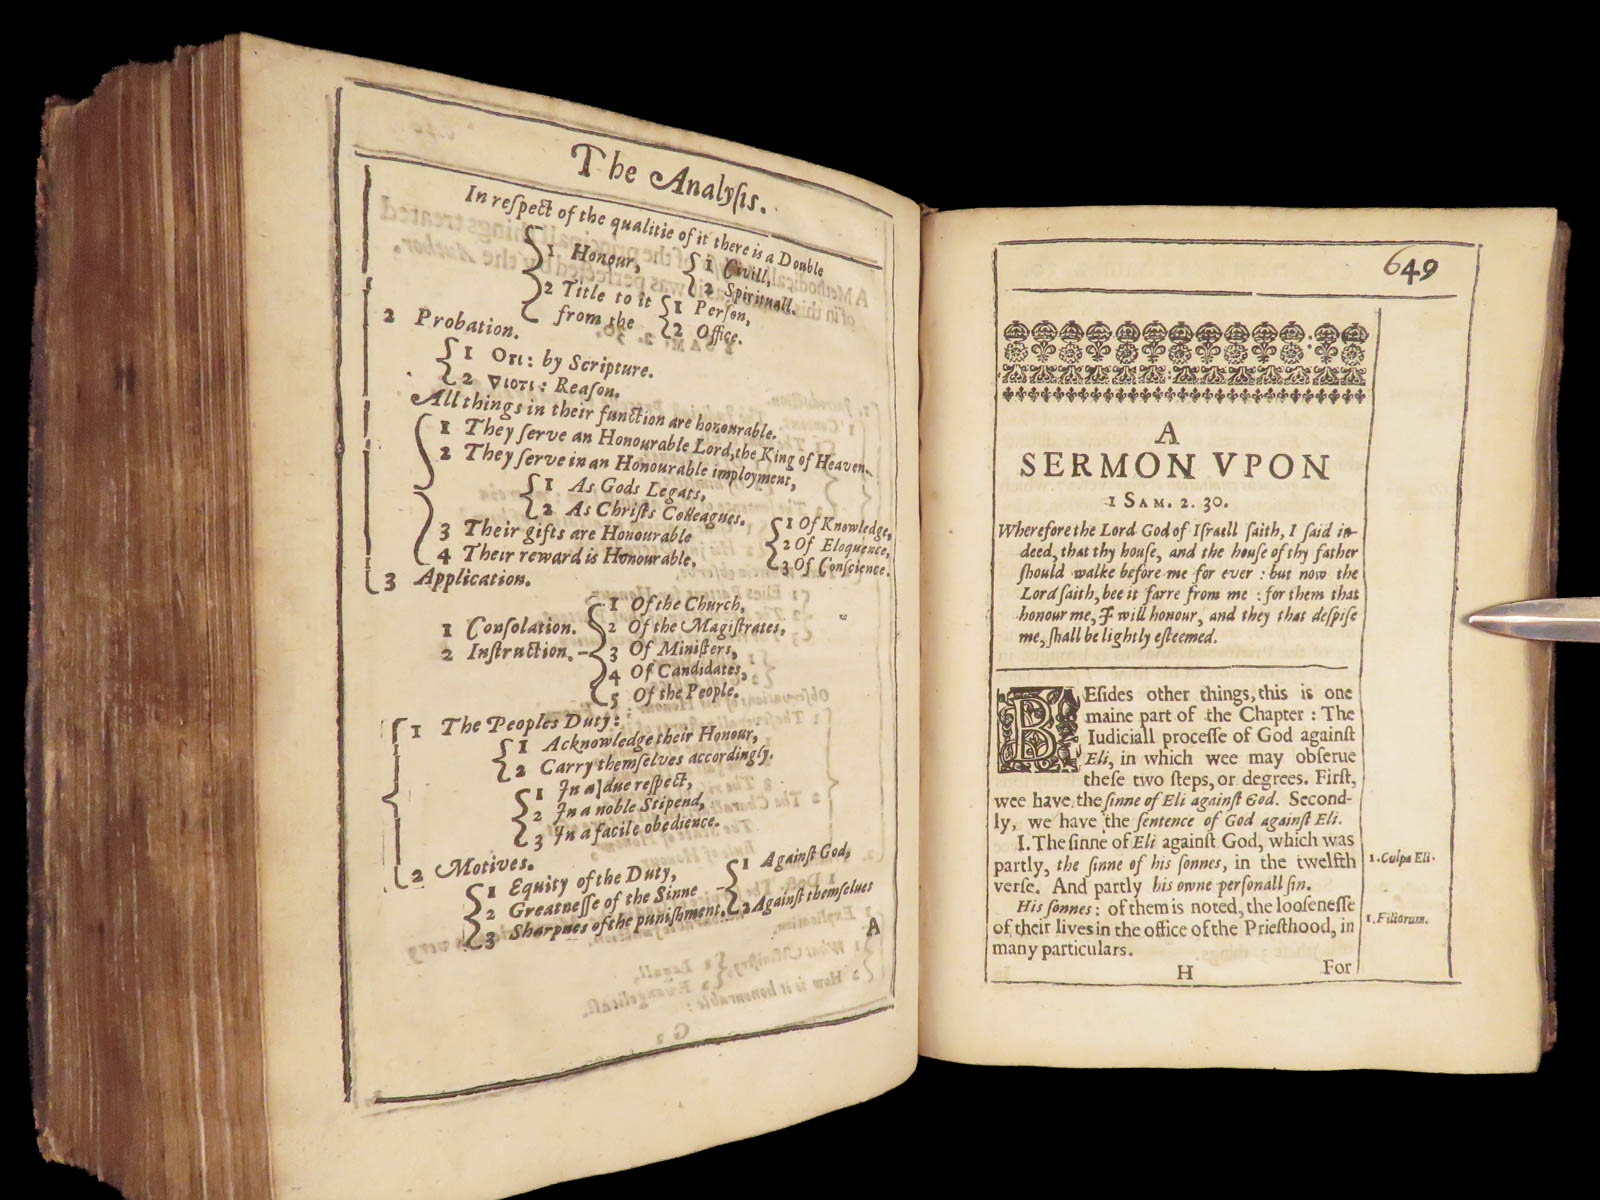 The Analyſis.
In reſpect of the qualitie of it there is a Double
1 Honour, 1 Civill,
2 Spirituall.
2 Title to it from the 1 Perſon,
2 Office.
2 Probation.
1 Οτι: by Scripture.
2 ∇ιοτι: Reaſon.
All things in their function are honourable.
1 They ſerve an Honourable Lord, the King of Heaven.
2 They ſerve in an Honourable imployment,
1 As Gods Legats,
2 As Chriſts Colleagues.
3 Their gifts are Honourable 1 Of Knowledge,
2 Of Eloquence,
3 Of Conſcience.
4 Their reward is Honourable.
3 Application.
1 Conſolation.
2 Inſtruction.
1 Of the Church,
2 Of the Magiſtrates,
3 Of Miniſters,
4 Of Candidates,
5 Of the People.
1 The Peoples Duty:
1 Acknowledge their Honour,
2 Carry themſelves accordingly.
1 In a due reſpect,
2 In a noble Stipend,
3 In a facile obedience.
2 Motives.
1 Equity of the Duty,
2 Greatneſſe of the Sinne 1 Againſt God,
2 Againſt themſelues
3 Sharpnes of the puniſhment.
A
649
A
SERMON VPON
1 SAM. 2. 30.
Wherefore the Lord God of Iſraell ſaith, I ſaid in-
deed, that thy houſe, and the houſe of thy father
ſhould walke before me for ever : but now the
Lord ſaith, bee it farre from me : for them that
honour me, I will honour, and they that deſpiſe
me, ſhall be lightly eſteemed.
BEſides other things, this is one
maine part of the Chapter : The
Iudiciall proceſſe of God againſt
Eli, in which wee may obſerue
theſe two ſteps, or degrees. Firſt,
wee have the ſinne of Eli againſt God. Second-
ly, we have the ſentence of God againſt Eli.
I. The ſinne of Eli againſt God, which was
partly, the ſinne of his ſonnes, in the twelfth
verſe. And partly his owne perſonall ſin.
His ſonnes: of them is noted, the looſeneſſe
of their lives in the office of the Prieſthood, in
many particulars.
1. Culpa Eli.
1. Filiorum.
H For